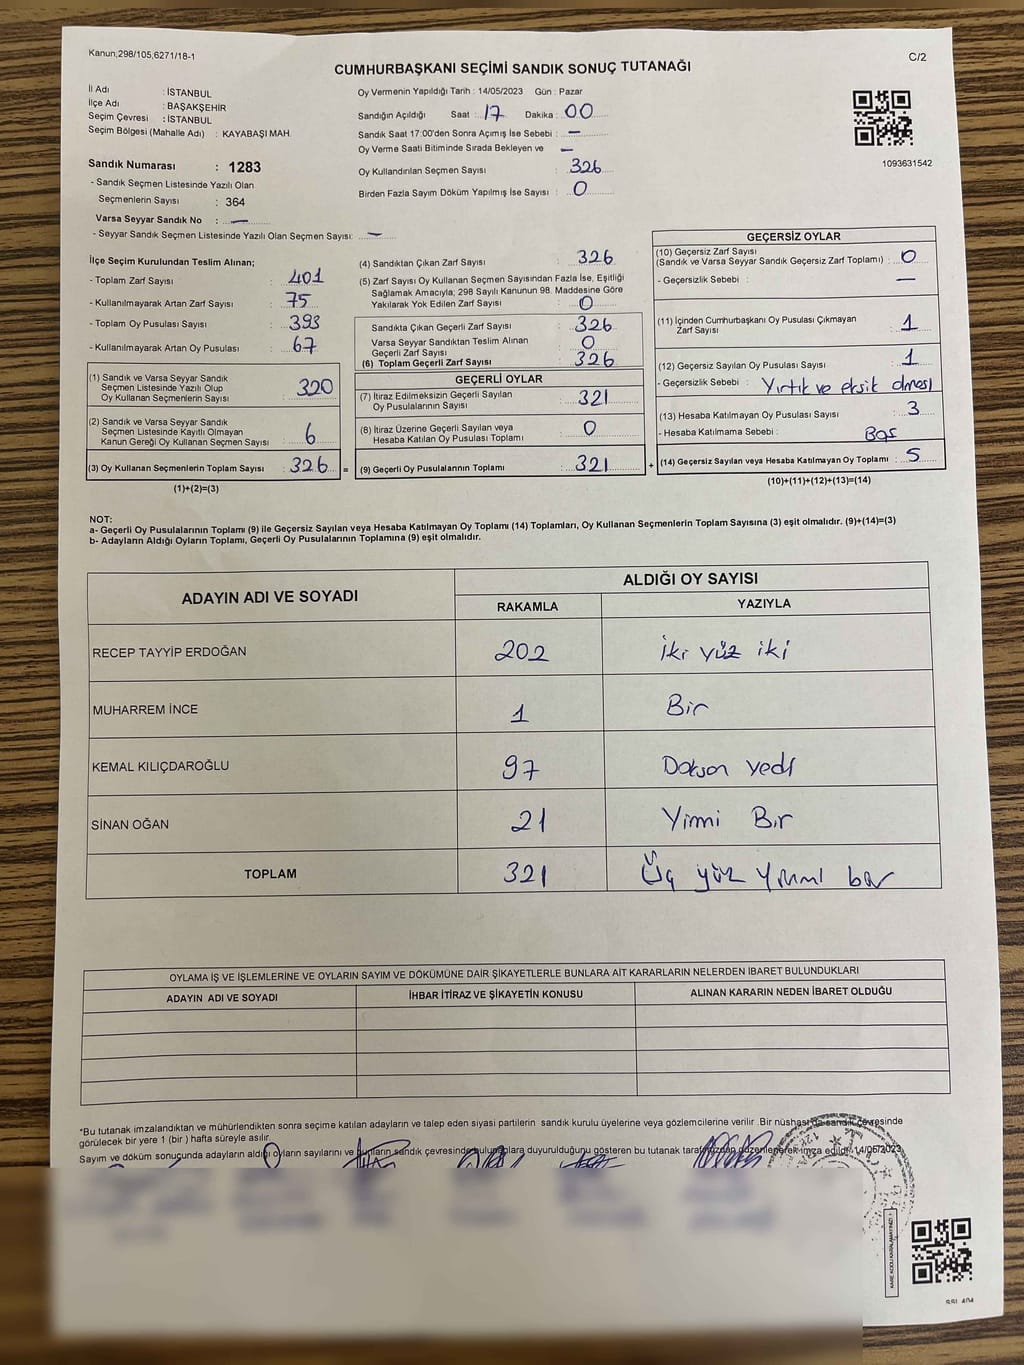 Kanun;298/105,6271/18-1
C/2
CUMHURBAŞKANI SEÇİMİ SANDIK SONUÇ TUTANAĞI
İl Adı : İSTANBUL
İlçe Adı : BAŞAKŞEHİR
Seçim Çevresi : İSTANBUL
Seçim Bölgesi (Mahalle Adı) : KAYABAŞI MAH.
Sandık Numarası : 1283
- Sandık Seçmen Listesinde Yazılı Olan
Seçmenlerin Sayısı : 364
Varsa Seyyar Sandık No : —
- Seyyar Sandık Seçmen Listesinde Yazılı Olan Seçmen Sayısı: —
Oy Vermenin Yapıldığı Tarih : 14/05/2023 Gün : Pazar
Sandığın Açıldığı Saat : 17 Dakika : 00
Sandık Saat 17:00'den Sonra Açımış İse Sebebi : —
Oy Verme Saati Bitiminde Sırada Bekleyen ve —
Oy Kullandırılan Seçmen Sayısı : 326
Birden Fazla Sayım Döküm Yapılmış İse Sayısı : 0
1093631542
İlçe Seçim Kurulundan Teslim Alınan;
- Toplam Zarf Sayısı : 401
- Kullanılmayarak Artan Zarf Sayısı : 75
- Toplam Oy Pusulası Sayısı : 393
- Kullanılmayarak Artan Oy Pusulası : 67
(1) Sandık ve Varsa Seyyar Sandık
Seçmen Listesinde Yazılı Olup
Oy Kullanan Seçmenlerin Sayısı : 320
(2) Sandık ve Varsa Seyyar Sandık
Seçmen Listesinde Kayıtlı Olmayan
Kanun Gereği Oy Kullanan Seçmen Sayısı : 6
(3) Oy Kullanan Seçmenlerin Toplam Sayısı : 326 =
(1)+(2)=(3)
(4) Sandıktan Çıkan Zarf Sayısı : 326
(5) Zarf Sayısı Oy Kullanan Seçmen Sayısından Fazla İse, Eşitliği
Sağlamak Amacıyla, 298 Sayılı Kanunun 98. Maddesine Göre
Yakılarak Yok Edilen Zarf Sayısı : 0
Sandıkta Çıkan Geçerli Zarf Sayısı : 326
Varsa Seyyar Sandıktan Teslim Alınan
Geçerli Zarf Sayısı : 0
(6) Toplam Geçerli Zarf Sayısı : 326
GEÇERLİ OYLAR
(7) İtiraz Edilmeksizin Geçerli Sayılan
Oy Pusulalarının Sayısı : 321
(8) İtiraz Üzerine Geçerli Sayılan veya
Hesaba Katılan Oy Pusulası Toplamı : 0
(9) Geçerli Oy Pusulalarının Toplamı : 321 +
GEÇERSİZ OYLAR
(10) Geçersiz Zarf Sayısı
(Sandık ve Varsa Seyyar Sandık Geçersiz Zarf Toplamı) : 0
- Geçersizlik Sebebi : —
(11) İçinden Cumhurbaşkanı Oy Pusulası Çıkmayan
Zarf Sayısı : 1
(12) Geçersiz Sayılan Oy Pusulası Sayısı : 1
- Geçersizlik Sebebi : Yırtık ve eksik olması
(13) Hesaba Katılmayan Oy Pusulası Sayısı : 3
- Hesaba Katılmama Sebebi : Boş
(14) Geçersiz Sayılan veya Hesaba Katılmayan Oy Toplamı : 5
(10)+(11)+(12)+(13)=(14)
NOT:
a- Geçerli Oy Pusulalarının Toplamı (9) ile Geçersiz Sayılan veya Hesaba Katılmayan Oy Toplamı (14) Toplamları, Oy Kullanan Seçmenlerin Toplam Sayısına (3) eşit olmalıdır. (9)+(14)=(3)
b- Adayların Aldığı Oyların Toplamı, Geçerli Oy Pusulalarının Toplamına (9) eşit olmalıdır.
ADAYIN ADI VE SOYADI
ALDIĞI OY SAYISI
RAKAMLA YAZIYLA
RECEP TAYYİP ERDOĞAN 202 İki yüz iki
MUHARREM İNCE 1 Bir
KEMAL KILIÇDAROĞLU 97 Doksan yedi
SİNAN OĞAN 21 Yirmi Bir
TOPLAM 321 Üç yüz yirmi bir
OYLAMA İŞ VE İŞLEMLERİNE VE OYLARIN SAYIM VE DÖKÜMÜNE DAİR ŞİKAYETLERLE BUNLARA AİT KARARLARIN NELERDEN İBARET BULUNDUKLARI
ADAYIN ADI VE SOYADI İHBAR İTİRAZ VE ŞİKAYETİN KONUSU ALINAN KARARIN NEDEN İBARET OLDUĞU
*Bu tutanak imzalandıktan ve mühürlendikten sonra seçime katılan adayların ve talep eden siyasi partilerin sandık kurulu üyelerine veya gözlemcilerine verilir. Bir nüshası da sandık çevresinde
görülecek bir yere 1 (bir ) hafta süreyle asılır.
Sayım ve döküm sonucunda adayların aldığı oyların sayılarını ve bunların sandık çevresinde bulunanlara duyurulduğunu gösteren bu tutanak tarafımızdan düzenlenerek imza edildi. 14/05/2023